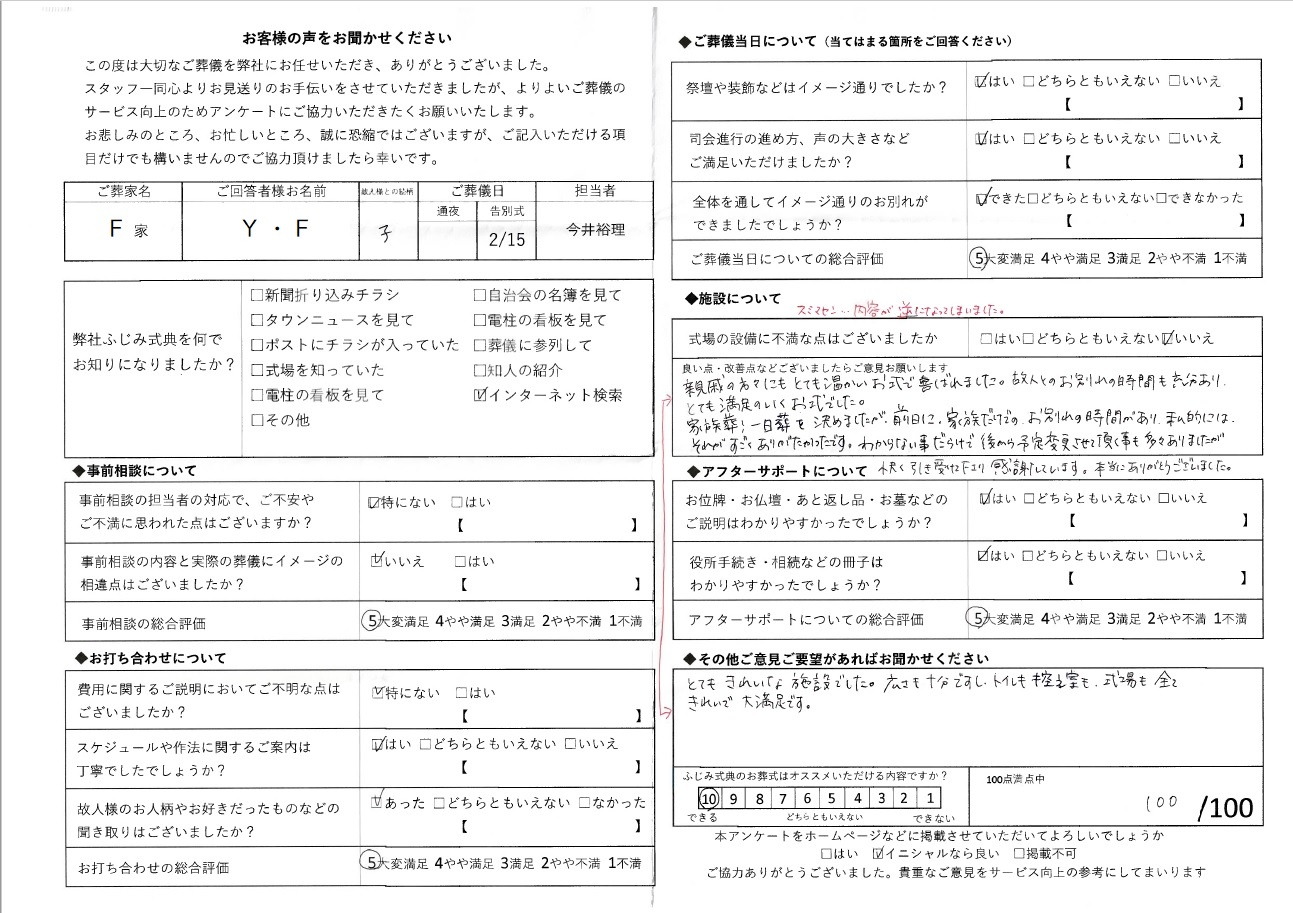 お客様の声をお聞かせください
この度は大切なご葬儀を弊社にお任せいただき、ありがとうございました。
スタッフ一同心よりお見送りのお手伝いをさせていただきましたが、よりよいご葬儀の
サービス向上のためアンケートにご協力いただきたくお願いいたします。
お悲しみのところ、お忙しいところ、誠に恐縮ではございますが、ご記入いただける項
目だけでも構いませんのでご協力頂けましたら幸いです。
ご葬家名 ご回答者様お名前 故人様との続柄 ご葬儀日 担当者
通夜 告別式
F 家 Y・F 子 2/15 今井裕理
弊社ふじみ式典を何で
お知りになりましたか?
□新聞折り込みチラシ □自治会の名簿を見て
□タウンニュースを見て □電柱の看板を見て
□ポストにチラシが入っていた □葬儀に参列して
□式場を知っていた □知人の紹介
□電柱の看板を見て ☑インターネット検索
□その他
◆事前相談について
事前相談の担当者の対応で、ご不安や
ご不満に思われた点はございますか?
☑特にない □はい
【 】
事前相談の内容と実際の葬儀にイメージの
相違点はございましたか?
☑いいえ □はい
【 】
事前相談の総合評価 ⑤大変満足 4やや満足 3満足 2やや不満 1不満
◆お打ち合わせについて
費用に関するご説明においてご不明な点は
ございましたか?
☑特にない □はい
【 】
スケジュールや作法に関するご案内は
丁寧でしたでしょうか?
☑はい □どちらともいえない □いいえ
【 】
故人様のお人柄やお好きだったものなどの
聞き取りはございましたか?
☑あった □どちらともいえない □なかった
【 】
お打ち合わせの総合評価 ⑤大変満足 4やや満足 3満足 2やや不満 1不満
◆ご葬儀当日について（当てはまる箇所をご回答ください）
祭壇や装飾などはイメージ通りでしたか?
☑はい □どちらともいえない □いいえ
【 】
司会進行の進め方、声の大きさなど
ご満足いただけましたか?
☑はい □どちらともいえない □いいえ
【 】
全体を通してイメージ通りのお別れが
できましたでしょうか?
☑できた□どちらともいえない□できなかった
【 】
ご葬儀当日についての総合評価 ⑤大変満足 4やや満足 3満足 2やや不満 1不満
◆施設について
スミマセン…内容が逆になってしまいました。
式場の設備に不満な点はございましたか □はい□どちらともいえない☑いいえ
良い点・改善点などございましたらご意見お願いします
親戚の方々にもとても温かいお式で喜ばれました。故人とのお別れの時間も充分あり、
とても満足のいくお式でした。
家族葬；一日葬を決めましたが、前日に、家族だけでの、お別れの時間があり、私的には、
それがすごくありがたかったです。わからない事だらけで後から予定変更させて頂く事も多々ありましたが
◆アフターサポートについて 快く引き受けて下さり感謝しています。本当にありがとうございました。
お位牌・お仏壇・あと返し品・お墓などの
ご説明はわかりやすかったでしょうか?
☑はい □どちらともいえない □いいえ
【 】
役所手続き・相続などの冊子は
わかりやすかったでしょうか?
☑はい □どちらともいえない □いいえ
【 】
アフターサポートについての総合評価 ⑤大変満足 4やや満足 3満足 2やや不満 1不満
◆その他ご意見ご要望があればお聞かせください
とてもきれいな施設でした。広さも十分ですし、トイレも控え室も、式場も全て
きれいで大満足です。
ふじみ式典のお葬式はオススメいただける内容ですか?
⑩ 9 8 7 6 5 4 3 2 1
できる どちらともいえない できない
100点満点中
100 /100
本アンケートをホームページなどに掲載させていただいてよろしいでしょうか
□はい ☑イニシャルなら良い □掲載不可
ご協力ありがとうございました。貴重なご意見をサービス向上の参考にしてまいります